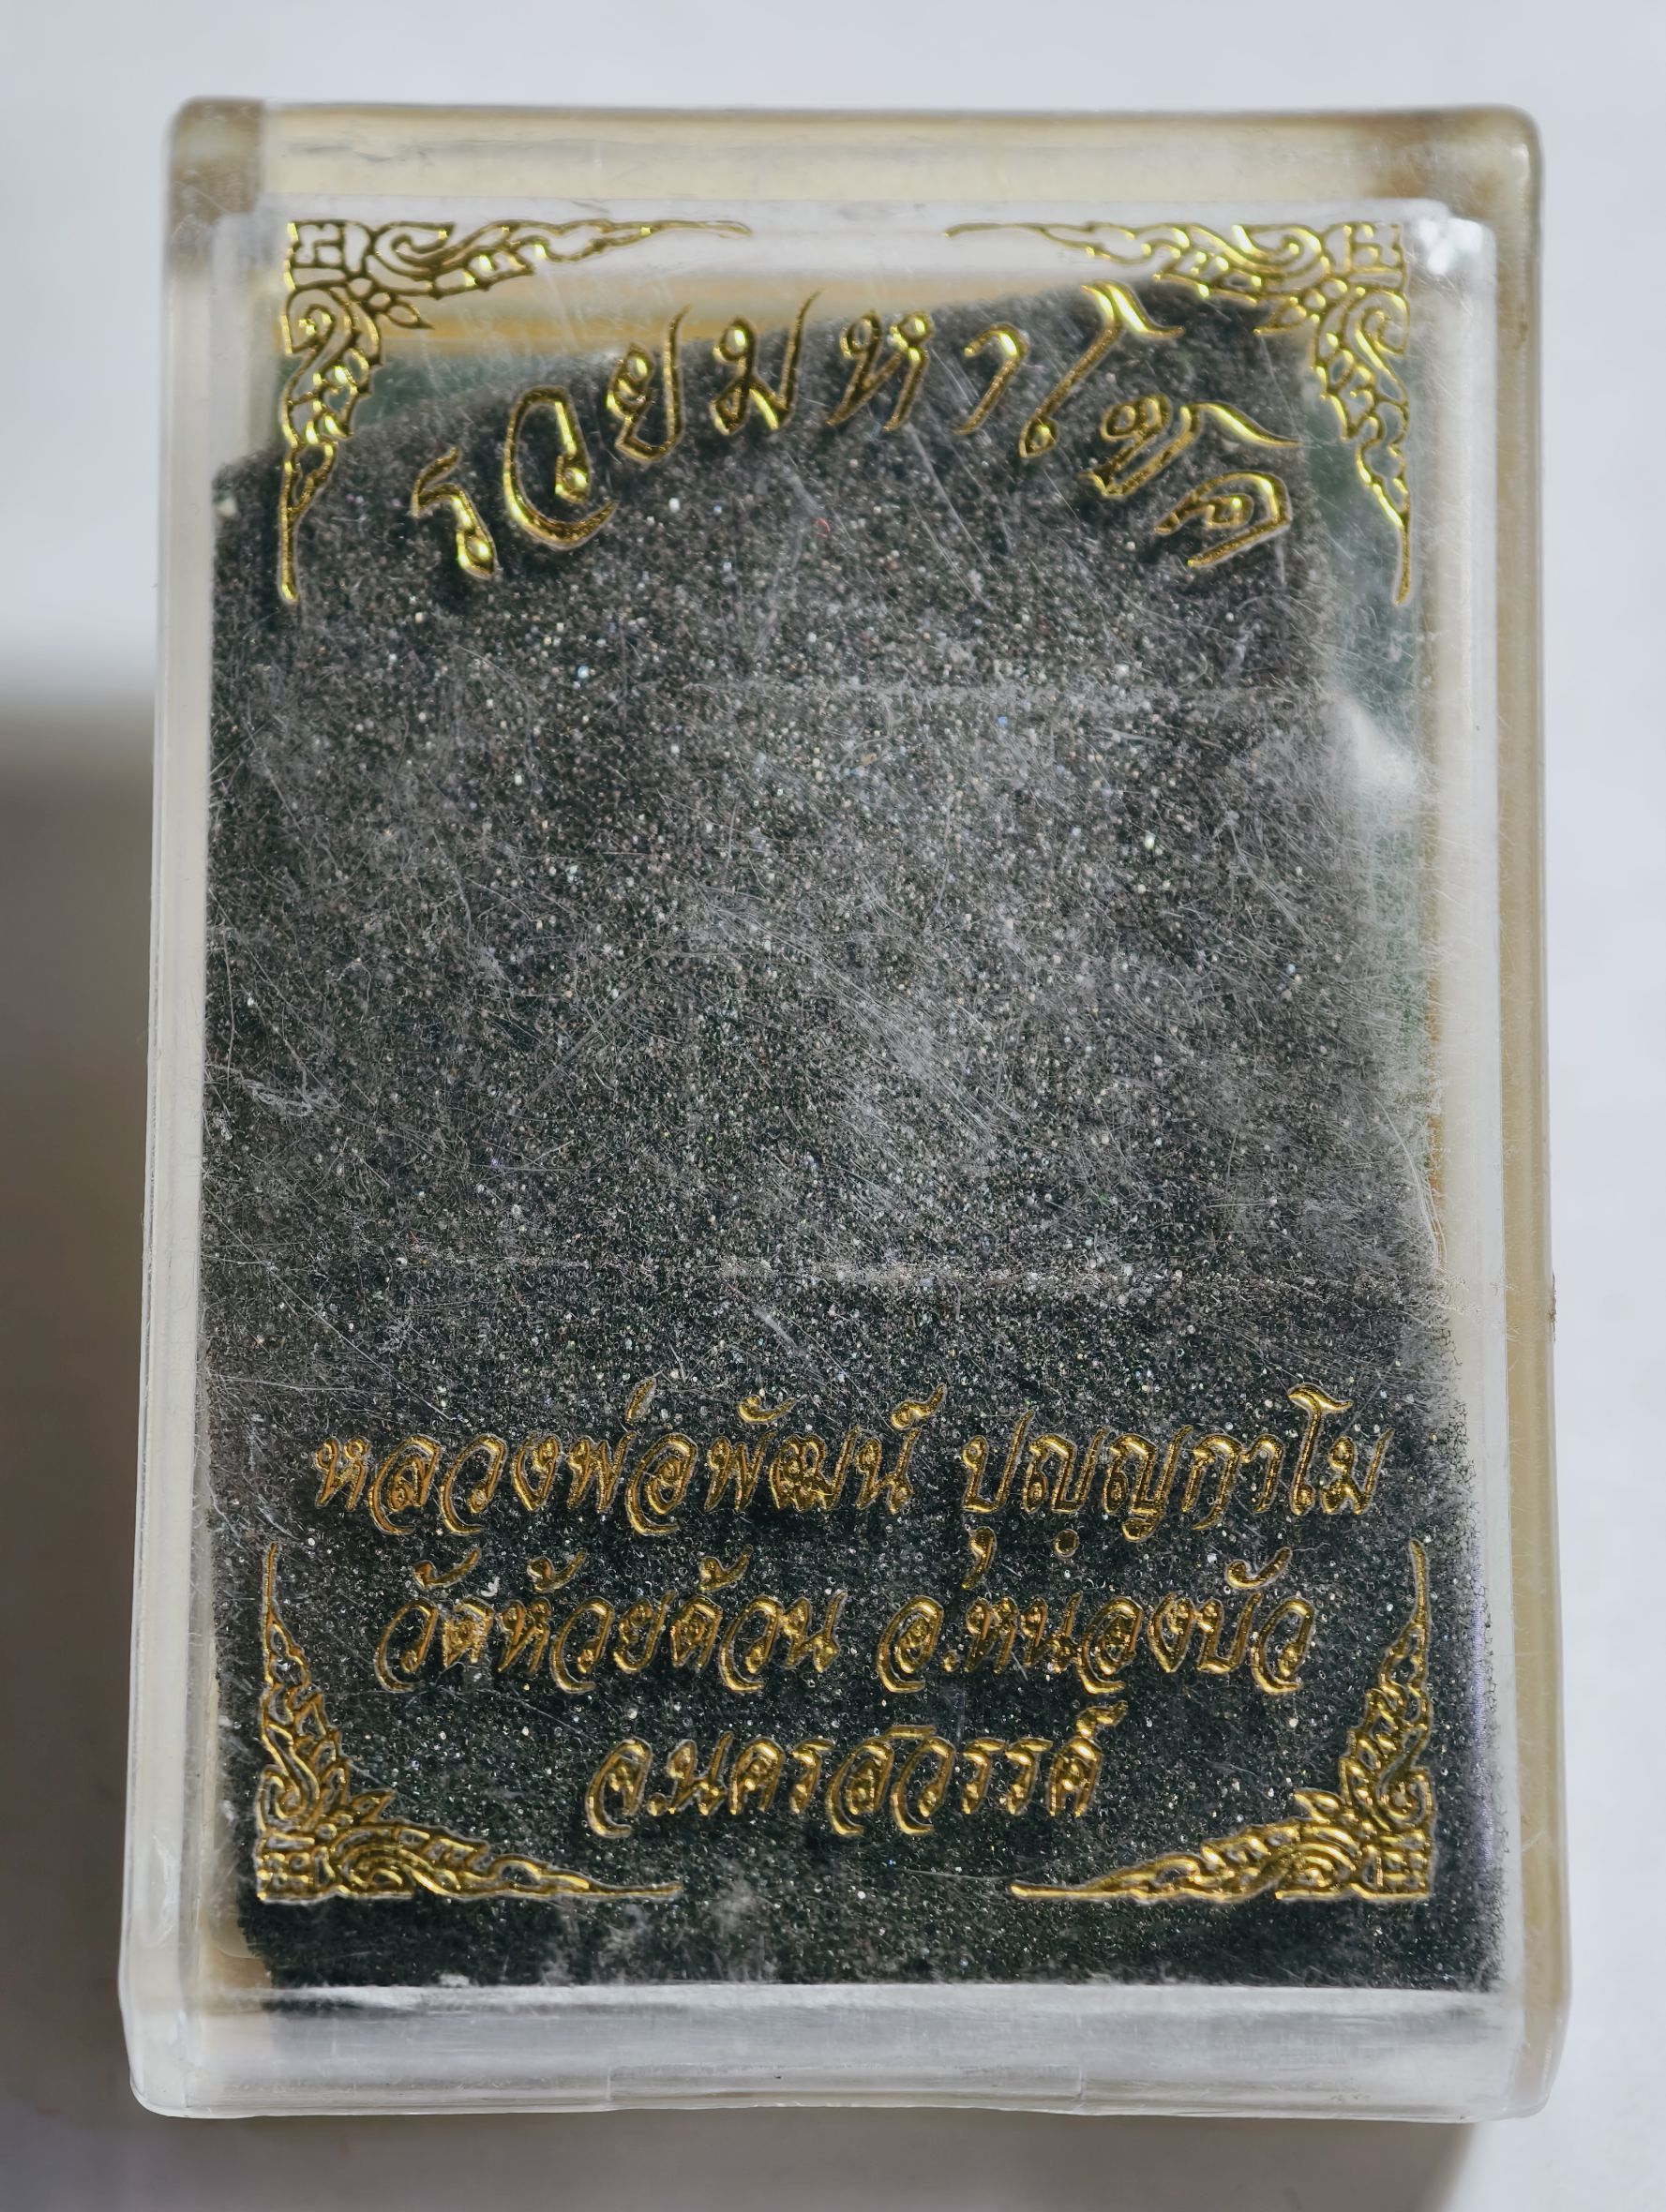 รวยมหาโชค
หลวงพ่อพัฒน์ ปุญฺญกาโม
วัดห้วยด้วน อ.หนองบัว
จ.นครสวรรค์